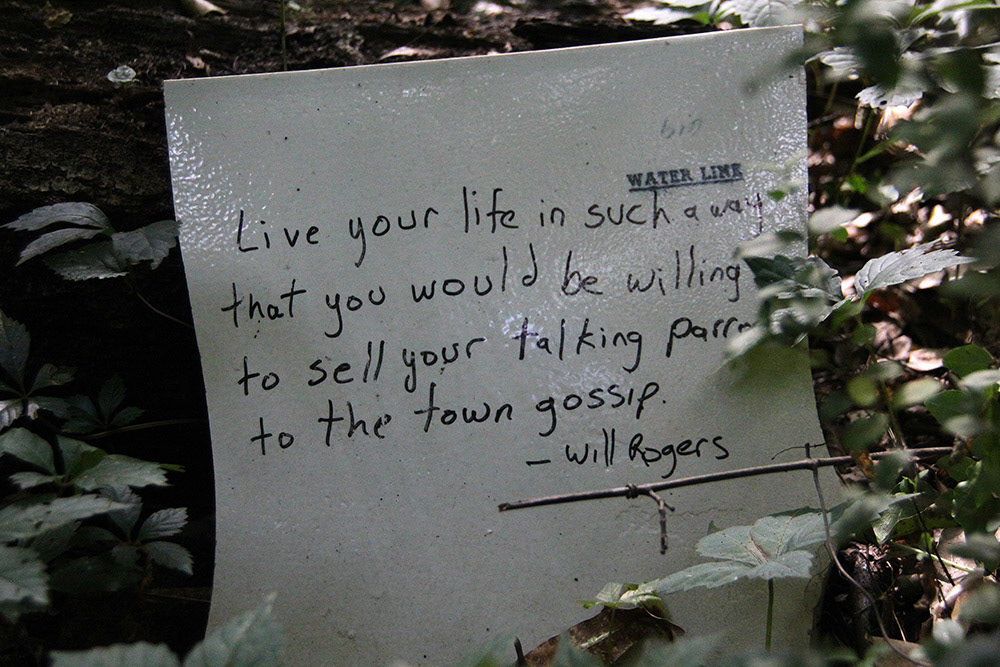 WATER LINE
Live your life in such a way
that you would be willing
to sell your talking parro
to the town gossip.
- Will Rogers